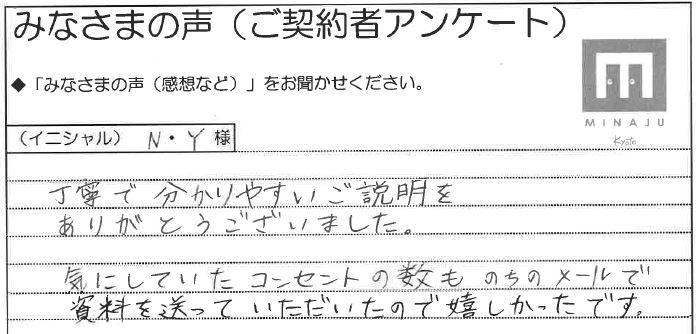 みなさまの声（ご契約者アンケート）
◆「みなさまの声（感想など）」をお聞かせください。
MINAJU
Kyoto
（イニシャル） N・Y 様
丁寧で分かりやすいご説明を
ありがとうございました。
気にしていたコンセントの数も のちのメールで
資料を送っていただいたので嬉しかったです。